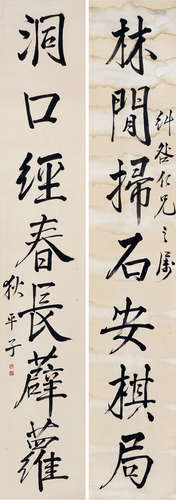 林間掃石安棋局
仁兄之屬
洞口經春長薜蘿
狄平子